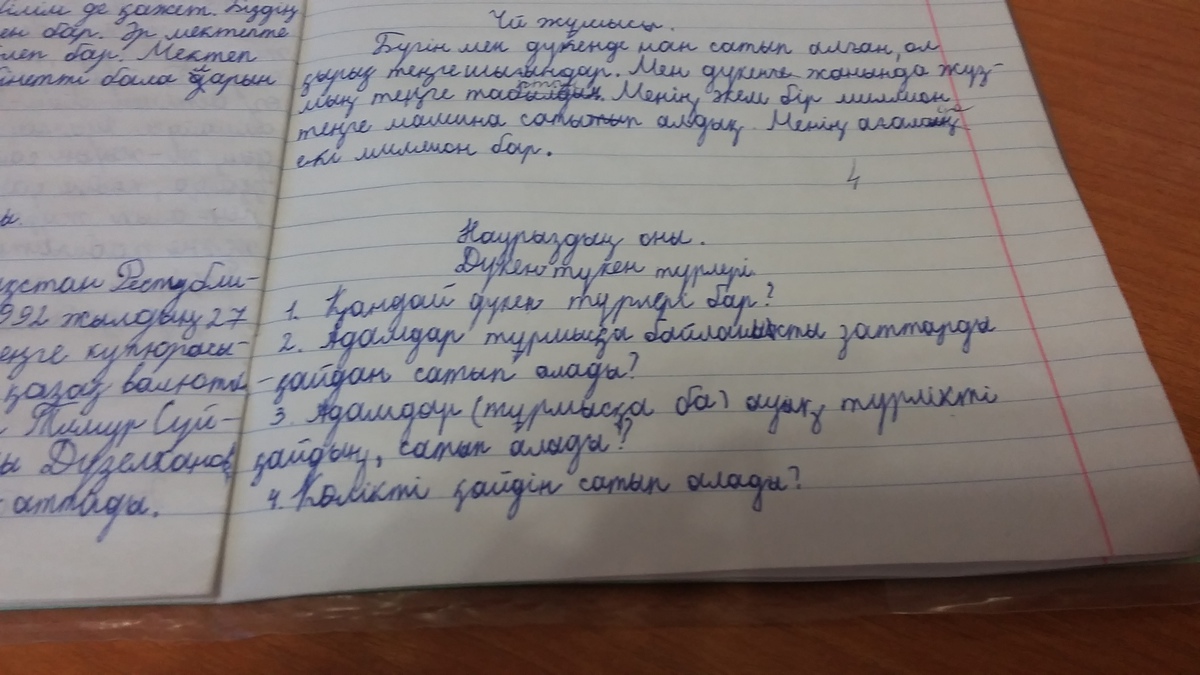 білім де қажет. Біздің
ен бар. Әр мектепте
леп бар. Мектеп
бала дарын
ы.
қстан Республи-
992 жылдың 27
еңге купюрасы-
қазақ валюта-
Тимур Сүй-
ы Дүзелханов
аттады.
Үй жұмысы.
Бүгін мен дүкенде нан сатып алған, ол
қырық теңге шығындар. Мен дүкенге жанында жүз-
мың теңге Менің әкем бір миллион
теңге машина сатып алдық. Менің
екі миллион бар.
4
Наурыздың оны.
Дүкен түкен түрлері
1. Қандай дүкен түрлері бар?
2. Адамдар тұрмысқа байланысты заттарды
қайдан сатып алады?
3. Адамдар (тұрмысқа ба) ауық түрлікті
қайдың, сатып алады?
4. Көлікті қайдін сатып алады?